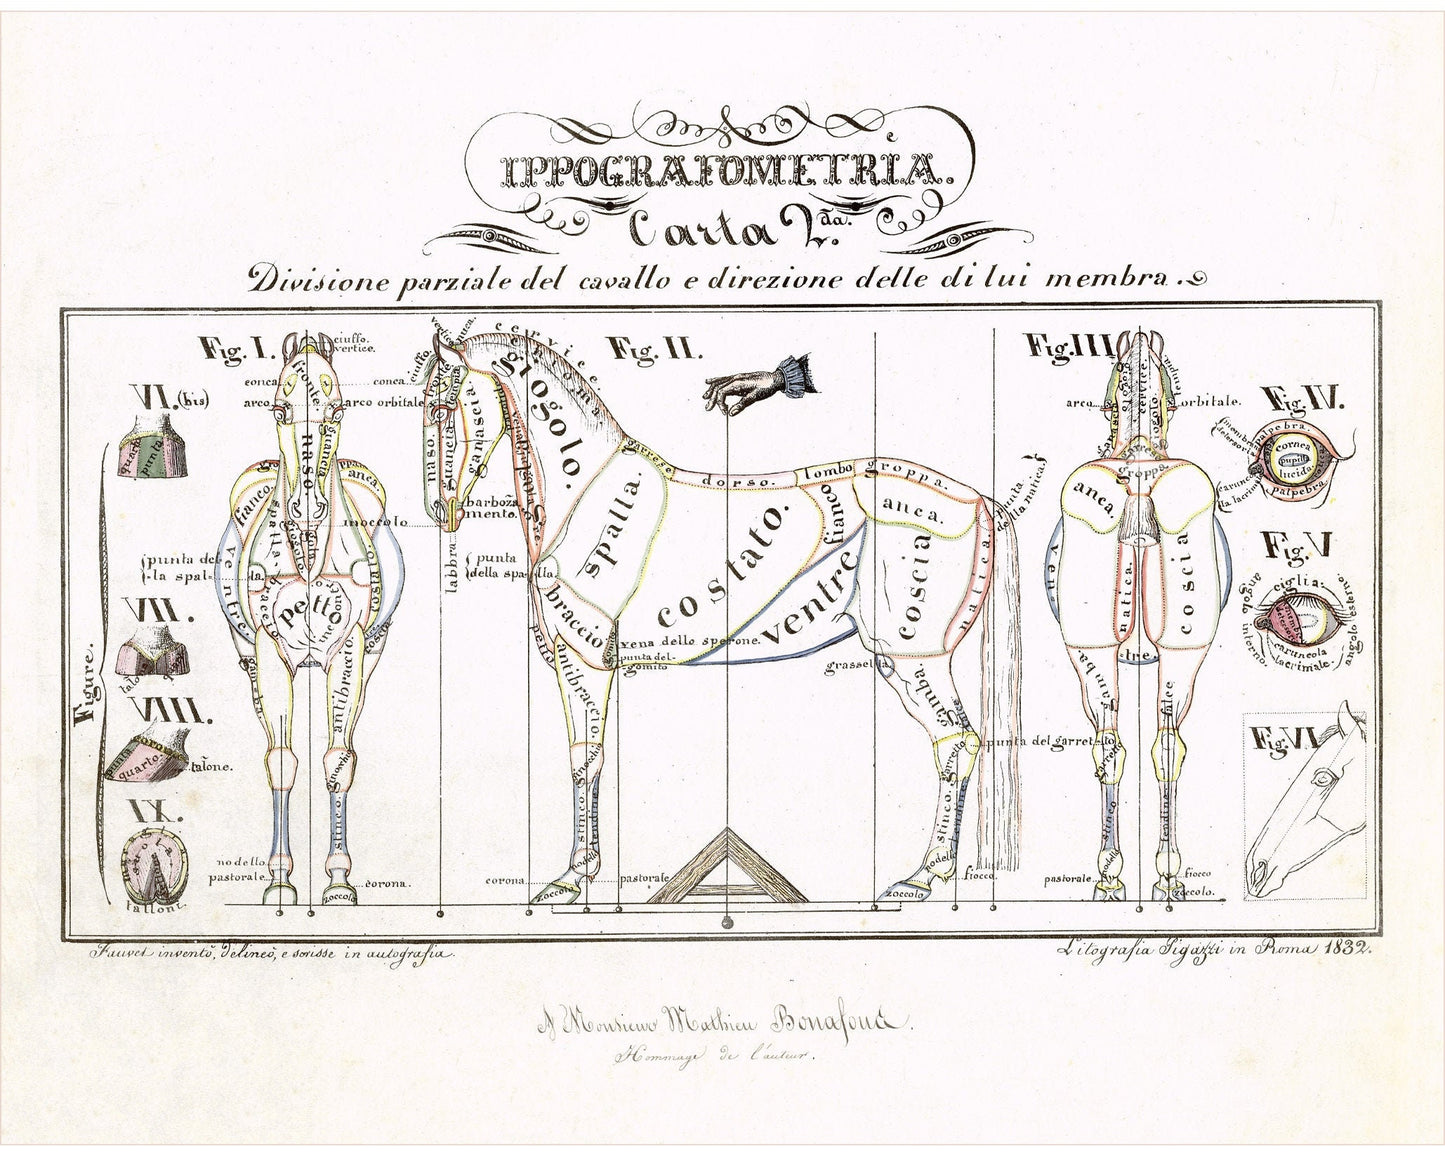 IPPOGRAFOMETRIA.
Carta 2.da
Divisione parziale del cavallo e direzione delle di lui membra.
Fig. I.
ciuffo.
vertice.
conca
conca
arco
arco orbitale
fronte.
naso
guancia
anca.
fianco.
spalla.
moccolo
punta del-
-la spal-
la.
ventre.
braccio
petto
antibraccio
ginocchio
stinco.
nodello
pastorale
corona.
zoccolo
Fig. II.
cervice.
chioma.
nuca.
ciuffo
fronte
tempia
naso.
guancia
ganascia.
giogolo.
barbozza
mento.
labbra
punta
della spalla
garrese
dorso.
lombo
groppa.
punta
della natica.
spalla.
costato.
fianco
anca.
ventre
coscia
natica.
braccio
vena dello sperone.
punta del-
-gomito
grassella
antibraccio.
gamba.
garretto
punta del garret-to
ginocchio
stinco.
tendine
nodello
corona
pastorale
zoccolo
stinco.
tendine
nodello
fiocco.
zoccolo
Fig. III
arco
orbitale.
giogolo
cervice.
groppa.
anca.
ven-
-tre.
natica.
coscia
gamba.
garretto
stinco
tendine
nodello
pastorale
fiocco
zoccolo.
Fig. IV.
palpebra.
cornea
pupilla
lucida.
palpebra
Fig. V
ciglia.
angolo esterno.
angolo interno.
caruncola
lacrimale.
Fig. VI
Figure.
VI. (bis)
quarto
punta
VII.
VIII.
corona
punta
quarto.
talone.
IX.
suola
Fauvet inventò, delineò, e scrisse in autografia.
Litografia Sigazzi in Roma 1832.
A Monsieur Mathieu Bonafous.
Hommage de l'auteur.